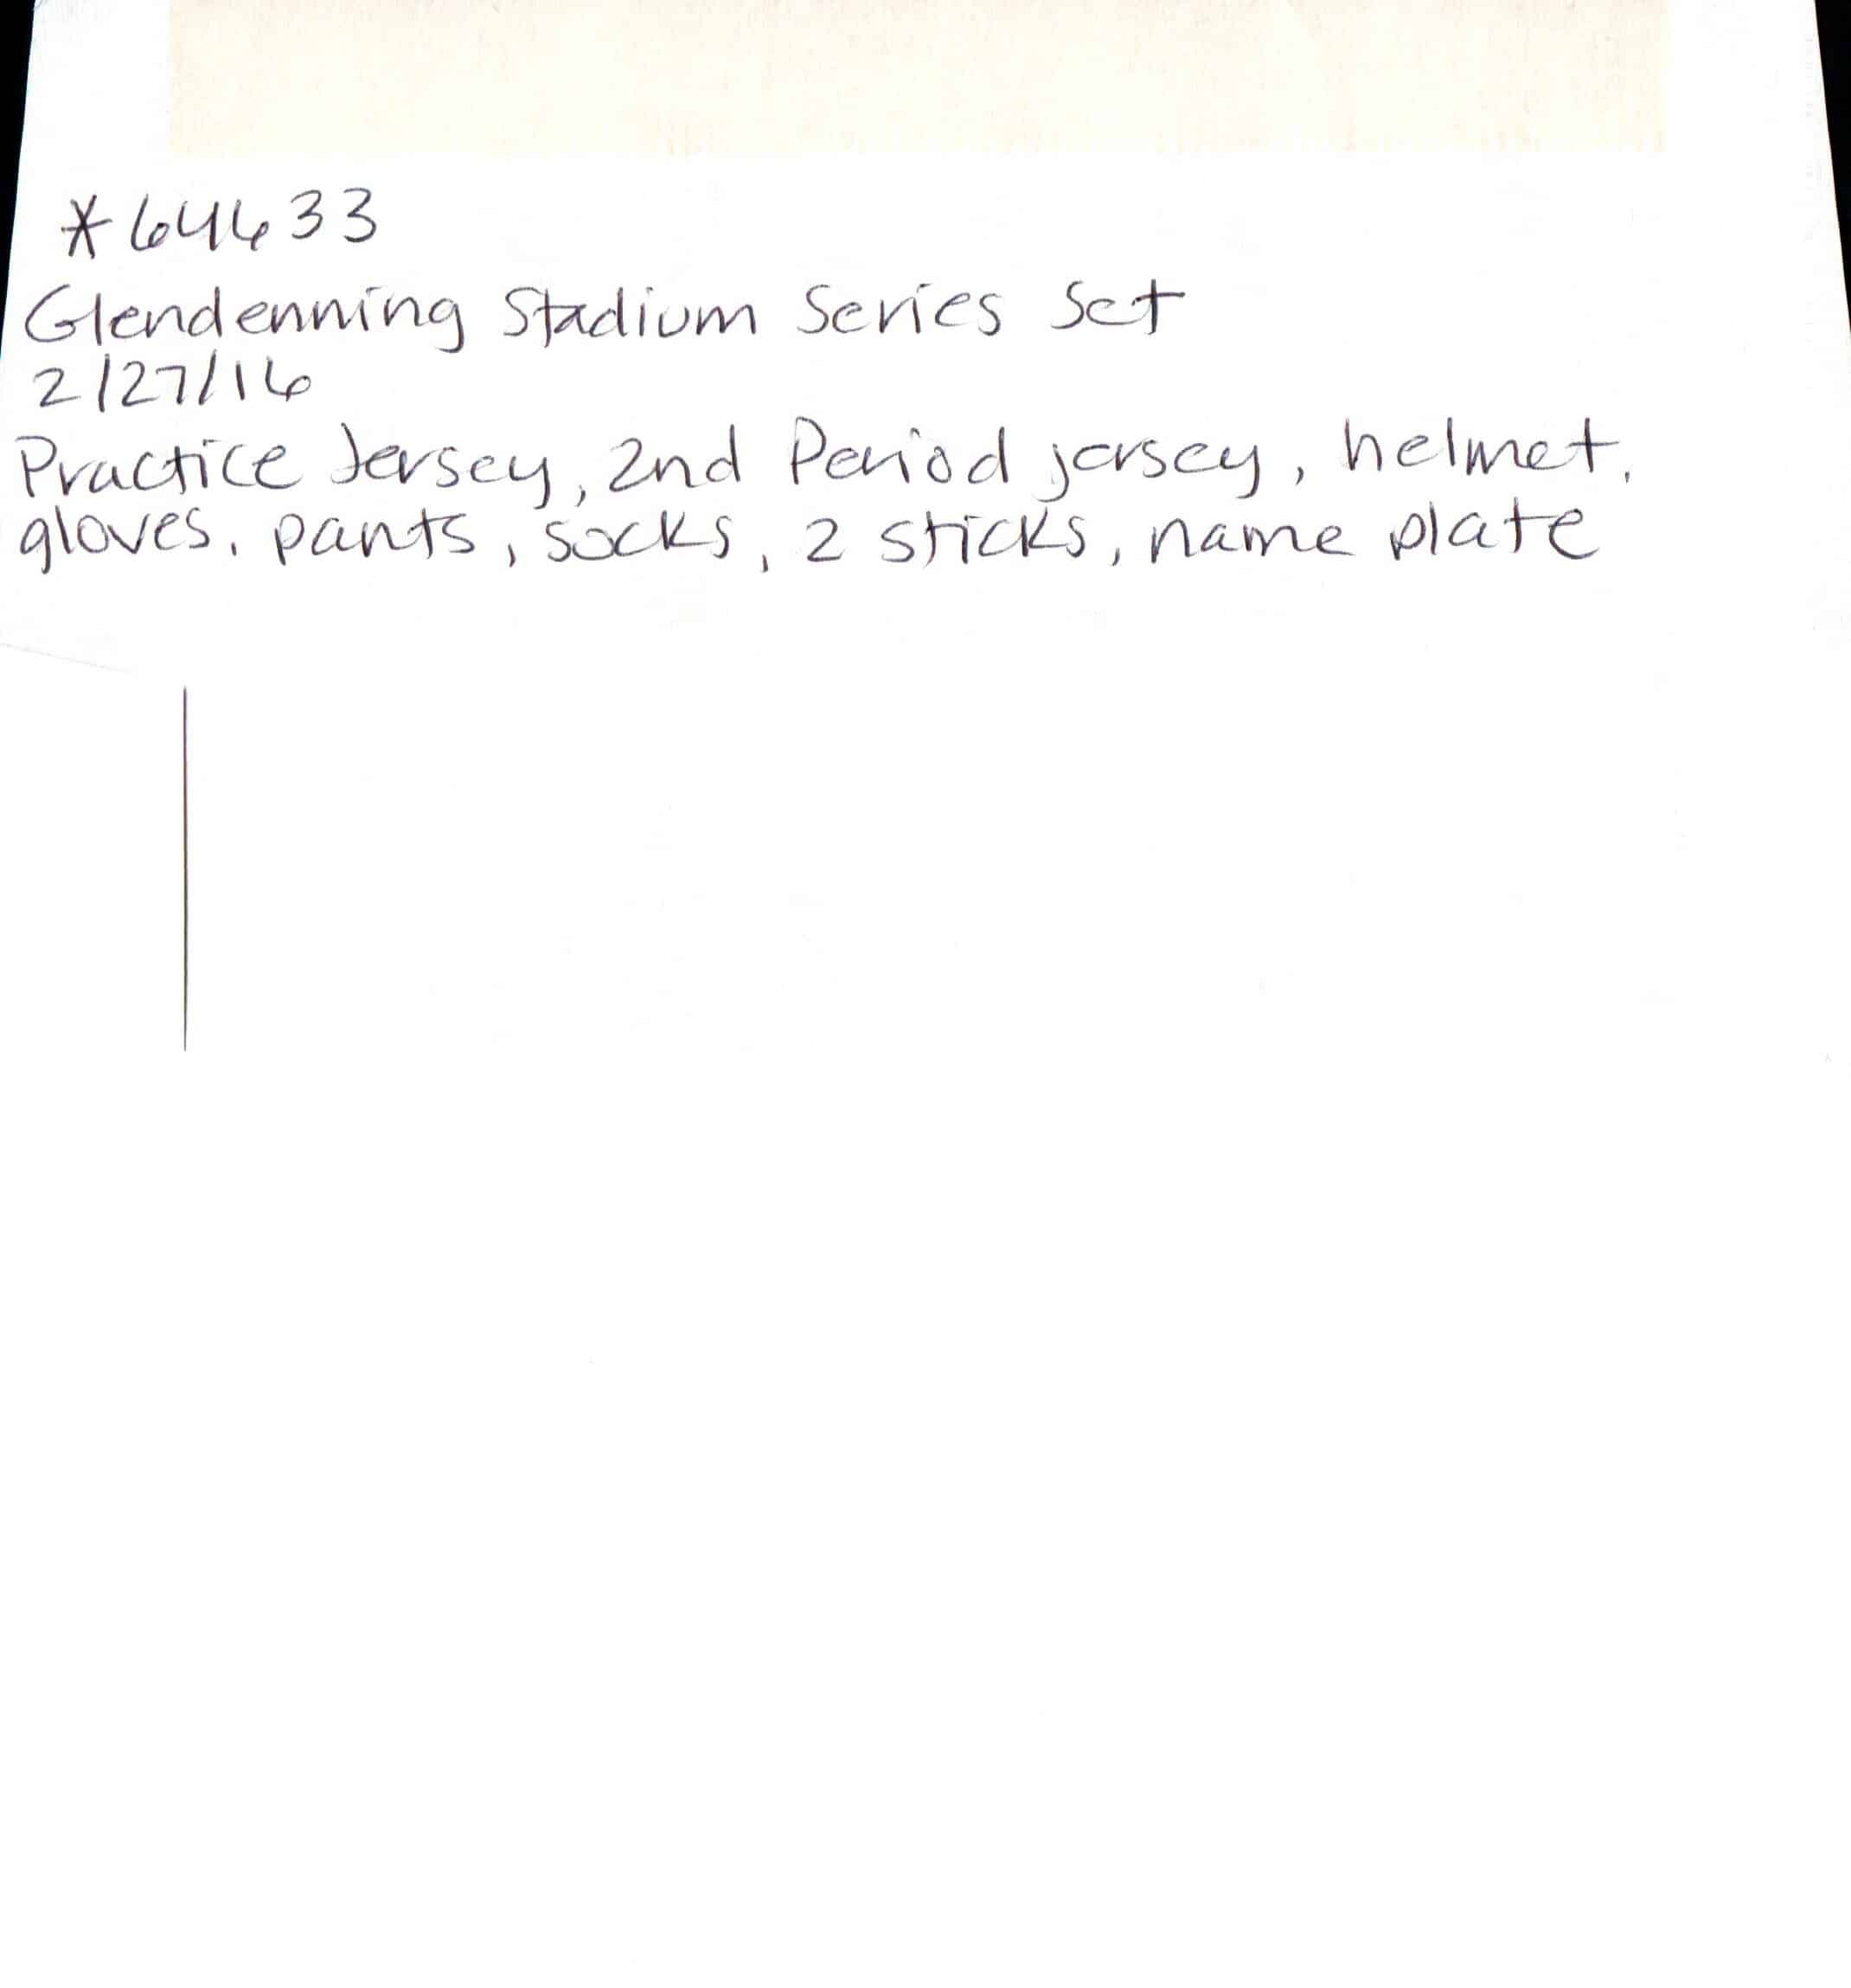 *64633
Glendenning Stadium Series Set
2/27/16
Practice Jersey, 2nd Period jersey, helmet,
gloves, pants, socks, 2 sticks, name plate